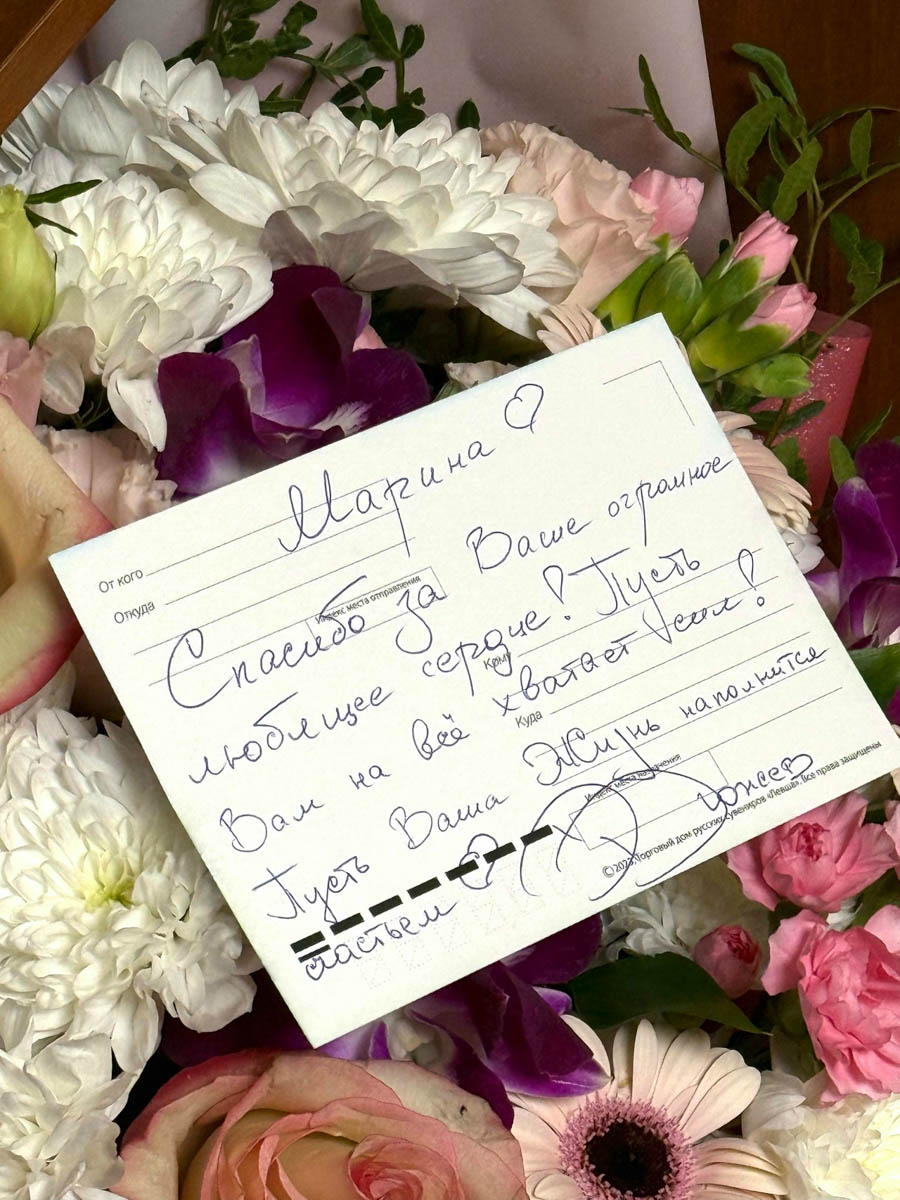 Марина
Спасибо за Ваше огромное
люблящее сердце! Пусть
Вам на всё хватает сил!
Пусть Ваша Жизнь наполнится
счастьем
От кого
Откуда
Индекс места отправления
Кому
Куда
Индекс места назначения
© 2023, Торговый дом русских сувениров «Левша». Все права защищены